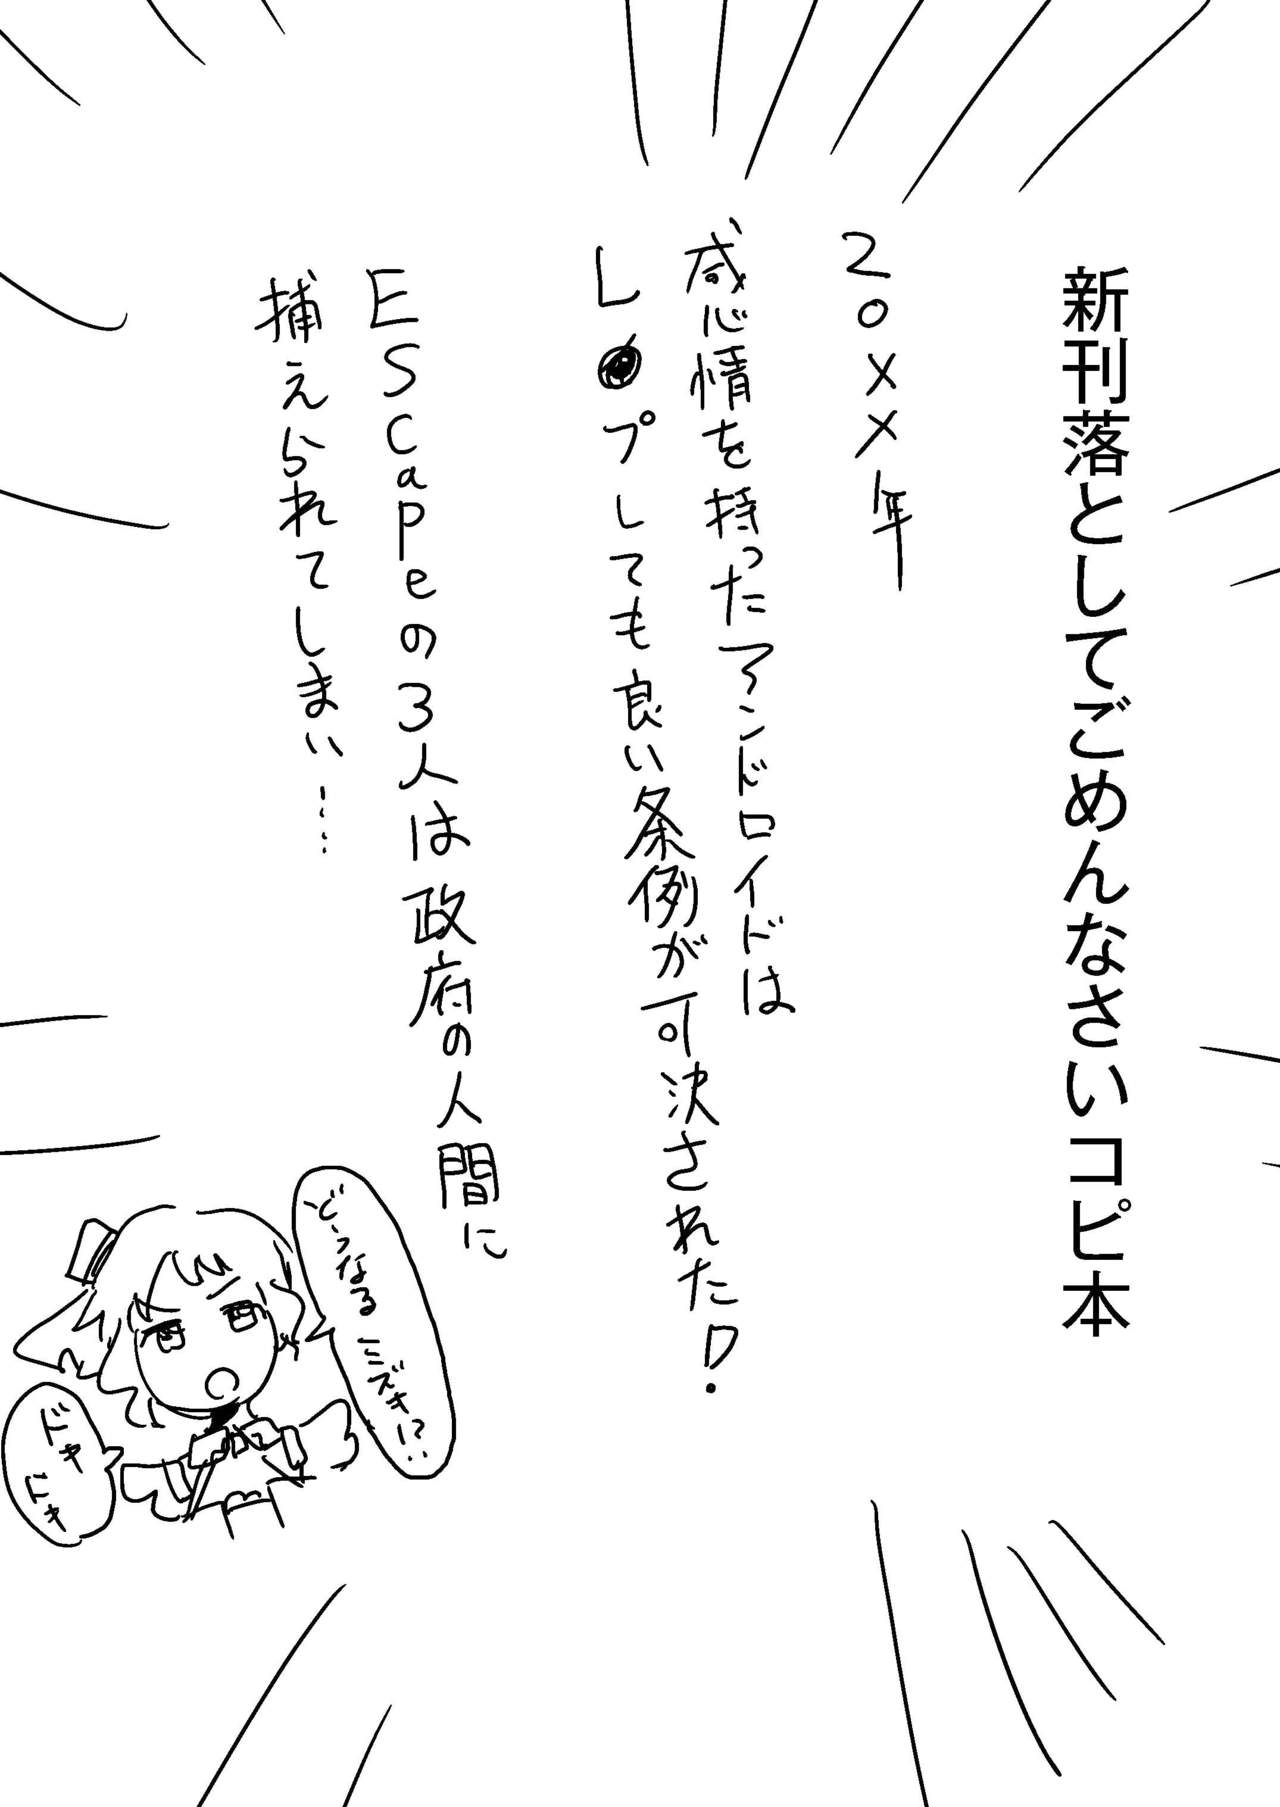 新刊落としてごめんなさいコピ本
20××年
感情を持ったアンドロイドは
レ●プしても良い条例が可決された!
EScapeの3人は政府の人間に
捕えられてしまい……
どーなる
ミズキ!?
ドキ
ドキ